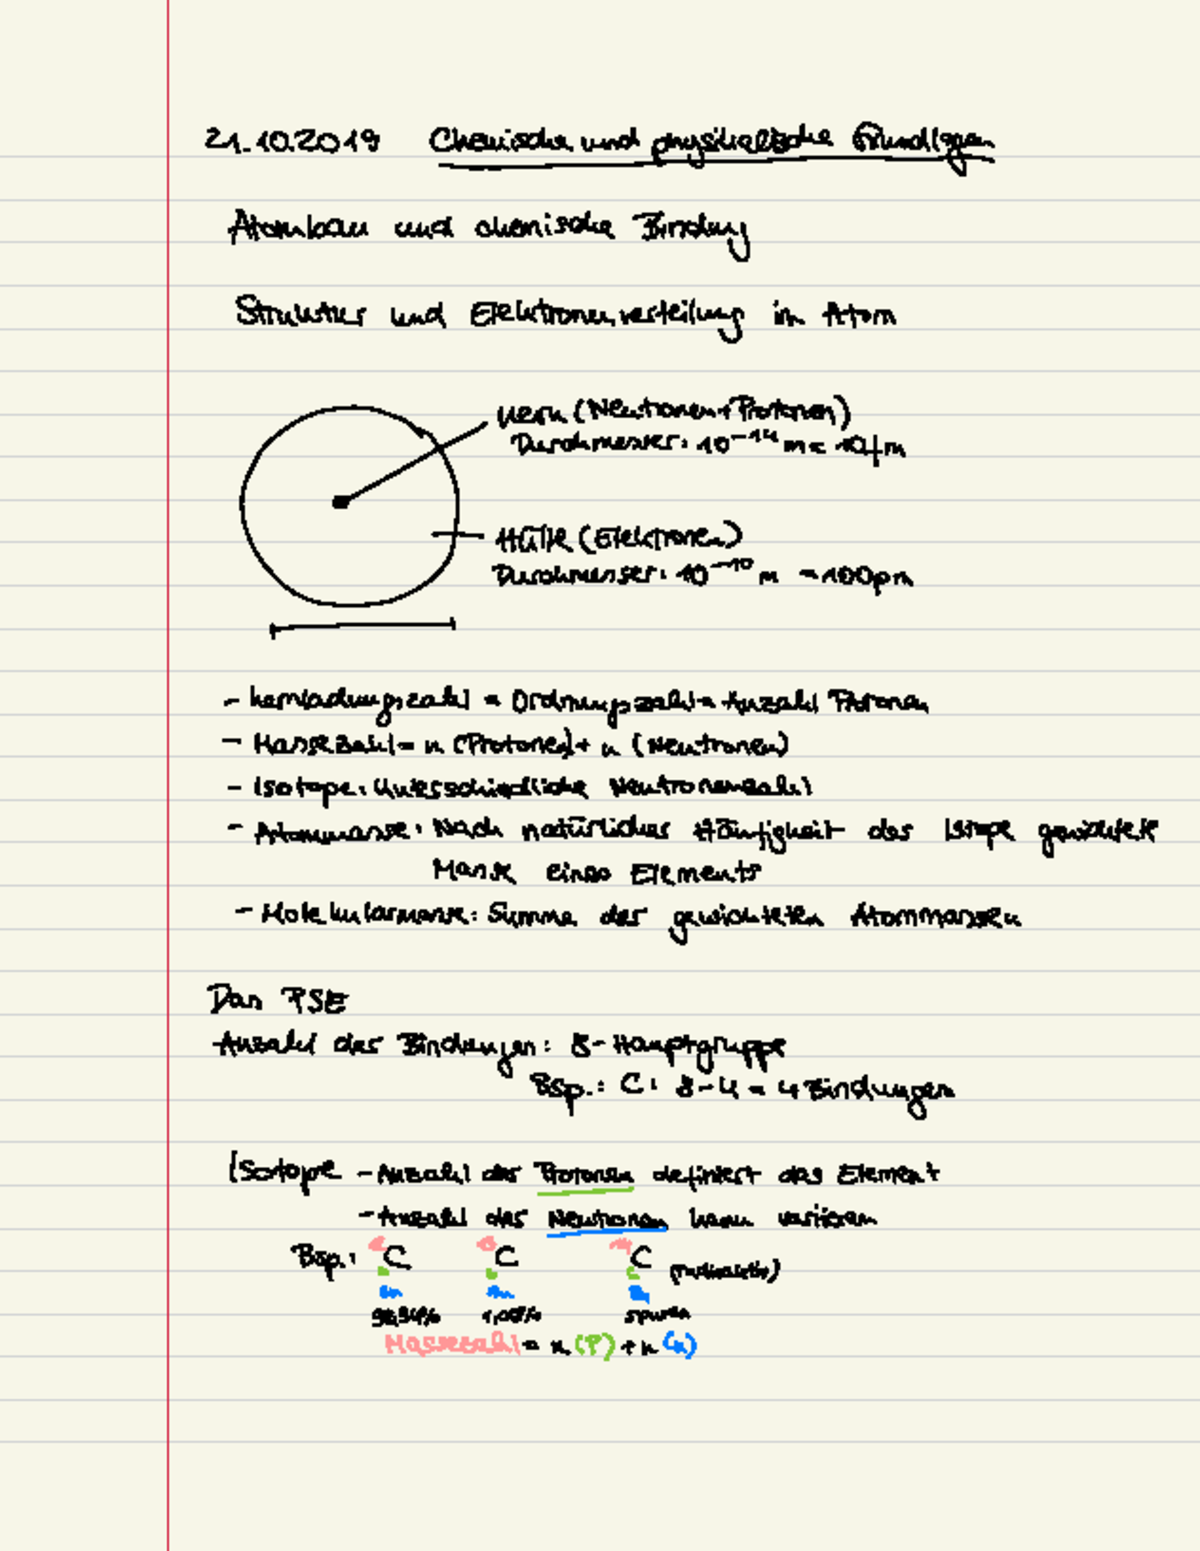 21.10.2019 Chemische und physikalische Grundlagen
Atombau und chemische Bindung
Struktur und Elektronenverteilung im Atom
Kern (Neutronen + Protonen)
Durchmesser: 10⁻¹⁴ m = 10fm
Hülle (Elektronen)
Durchmesser: 10⁻¹⁰ m = 100pm
- Kernladungszahl = Ordnungszahl = Anzahl Protonen
- Massezahl = n (Protonen) + n (Neutronen)
- Isotope: Unterschiedliche Neutronenzahl
- Atommasse: Nach natürlicher Häufigkeit der Isotope gewichtete
Masse eines Elements
- Molekularmasse: Summe der gewichteten Atommassen
Das PSE
Anzahl der Bindungen: 8-Hauptgruppe
Bsp.: C: 8-4 = 4 Bindungen
Isotope - Anzahl der Protonen definiert das Element
- Anzahl der Neutronen kann variieren
Bsp.: C C C (radioaktiv)
Spuren
Massezahl = n (P) + n (n)